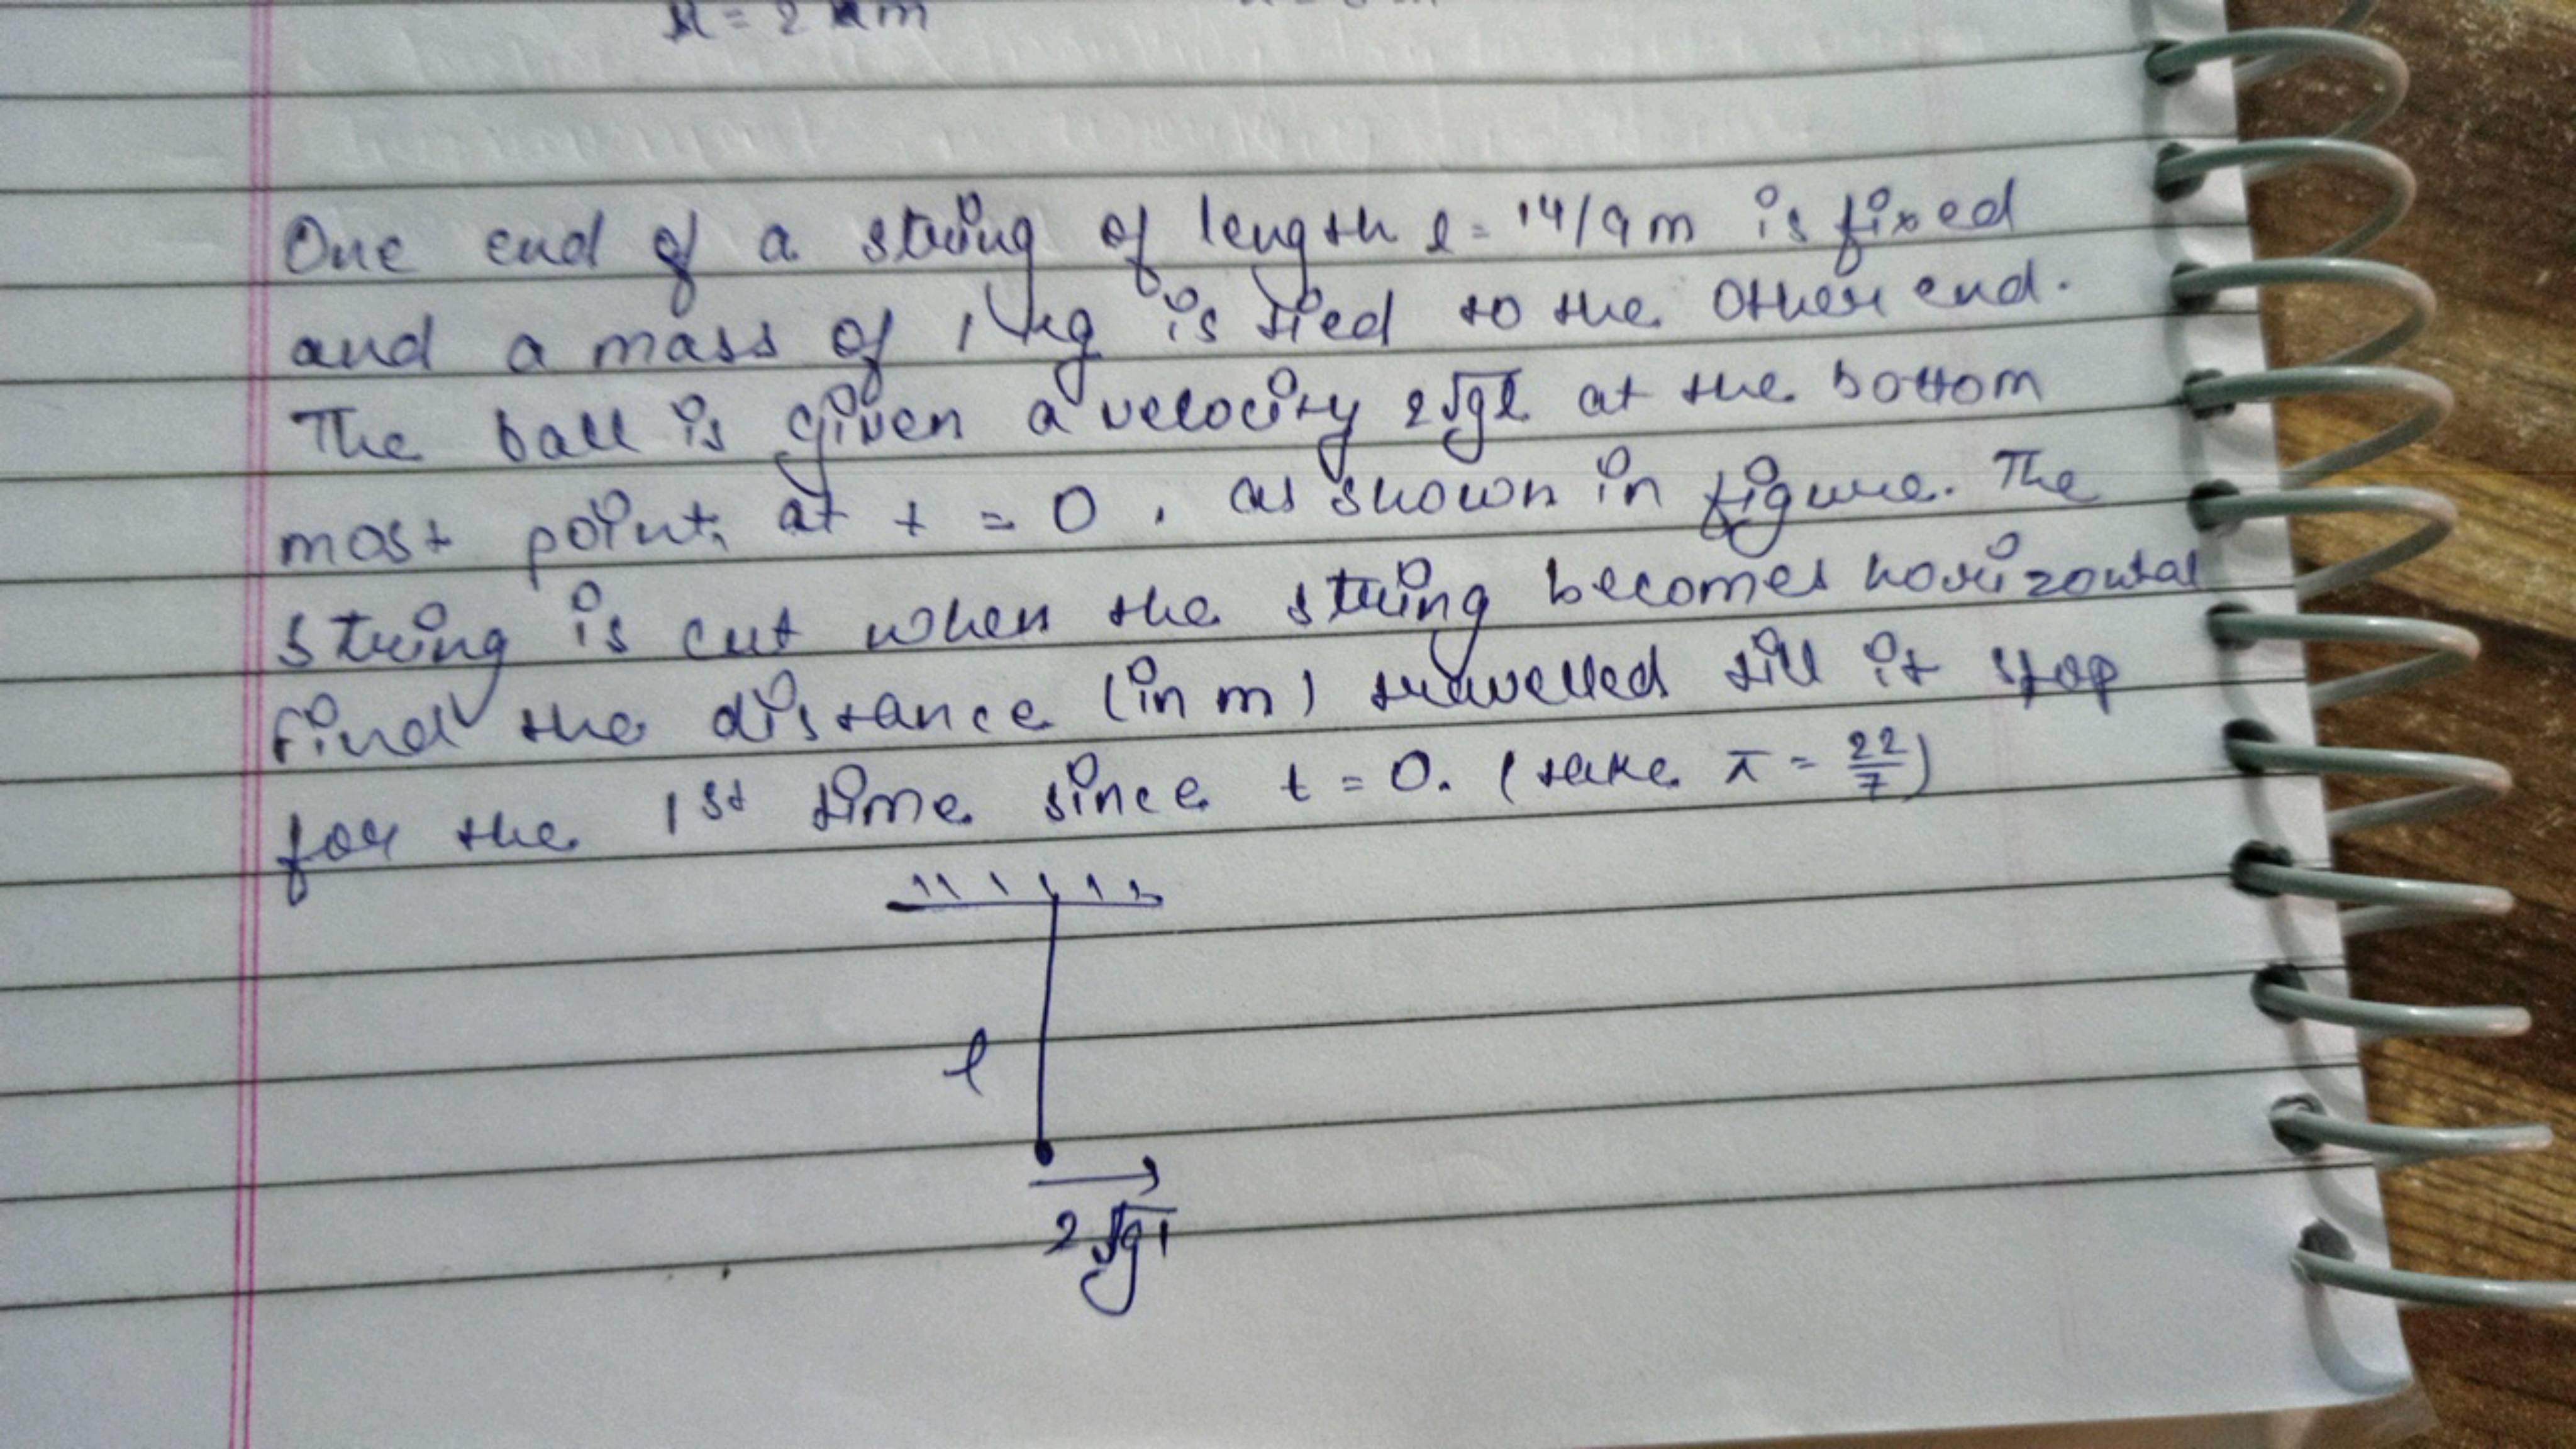 x = 2 m
One end of a string of length l = 14/9 m is fixed
and a mass of 1 kg is tied to the other end.
The ball is given a velocity 2√gl at the bottom
most point, at t = 0, as shown in figure. The
string is cut when the string becomes horizontal
find the distance (in m) travelled till it stop
for the 1st time since t = 0. (take π = 22/7)
l
2√gl